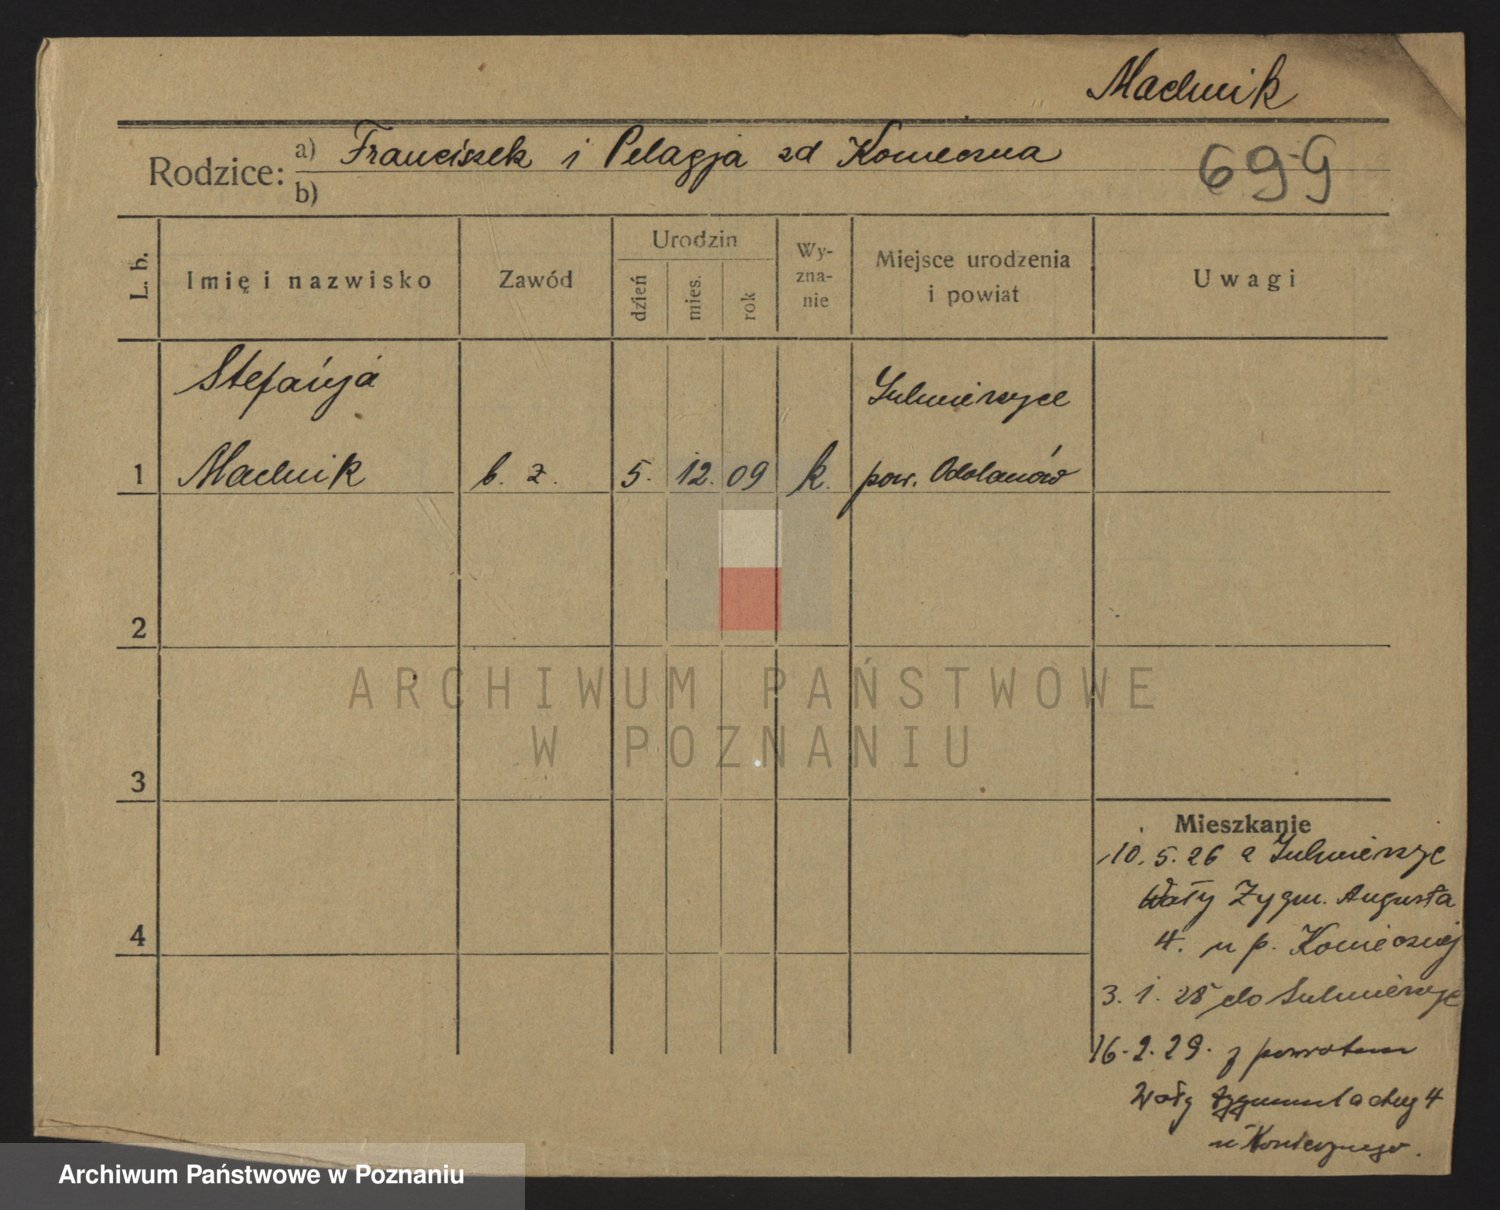 Maclmik
Rodzice: a) Franciszek i Pelagja zd Konieczna
b)
699
L. b.
Imię i nazwisko
Zawód
Urodzin
dzień
mies.
rok
Wy-
zna-
nie
Miejsce urodzenia
i powiat
Uwagi
Stefanja
Sulmierzyce
1 Maclmik b. z. 5. 12. 09 k. pow. Odolanów
2
3
4
Mieszkanie
10. 5. 26 z Sulmierzyc
Wały Zygm. Augusta
4. u p. Koniecznej
3. 1. 28 do Sulmierzyc
16. 2. 29. z powrotem
Wały Zygmunta Aug 4
u Koniecznego.
ARCHIWUM PAŃSTWOWE
W POZNANIU
Archiwum Państwowe w Poznaniu